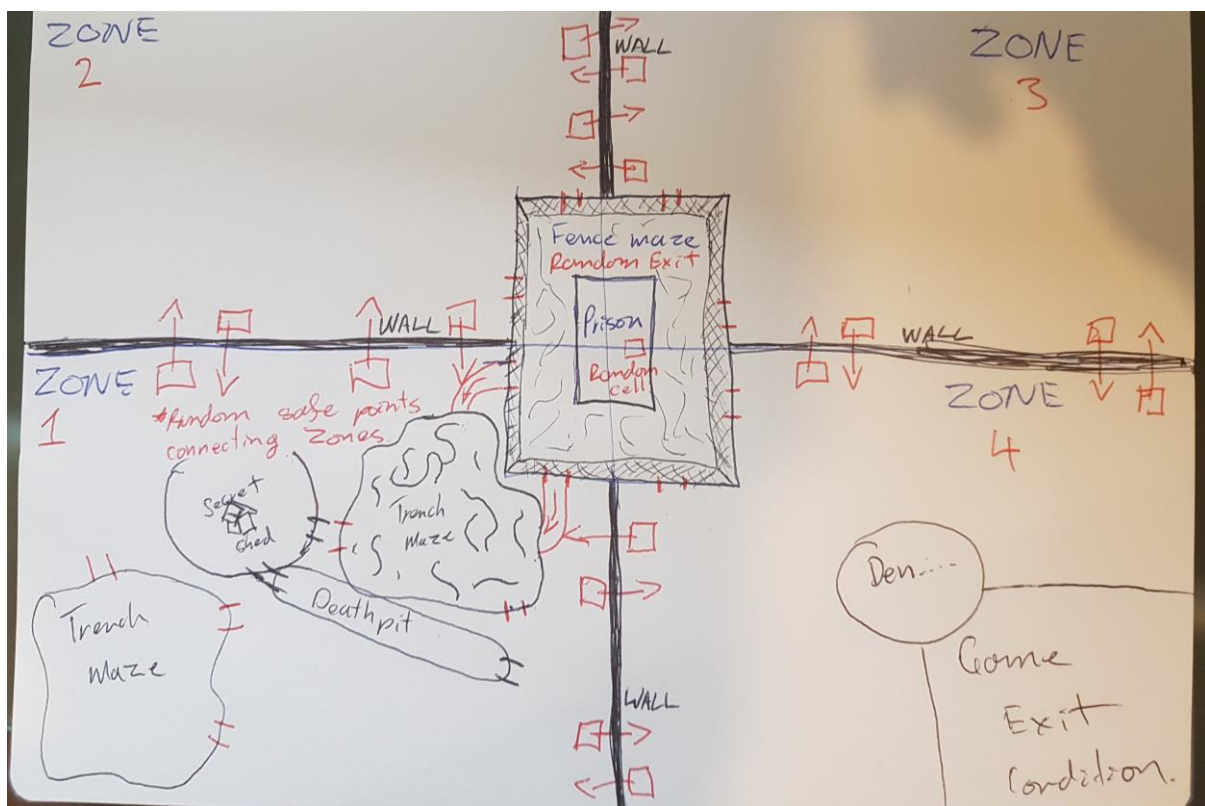 ZONE
2
WALL
ZONE
3
Fence maze
Random Exit
Prison
Random
cell
WALL
WALL
ZONE
1
*Random safe points
connecting Zones.
ZONE
4
Secret
shed
Trench
maze
Death pit
Trench
maze
Den....
Game
Exit
Condition.
WALL